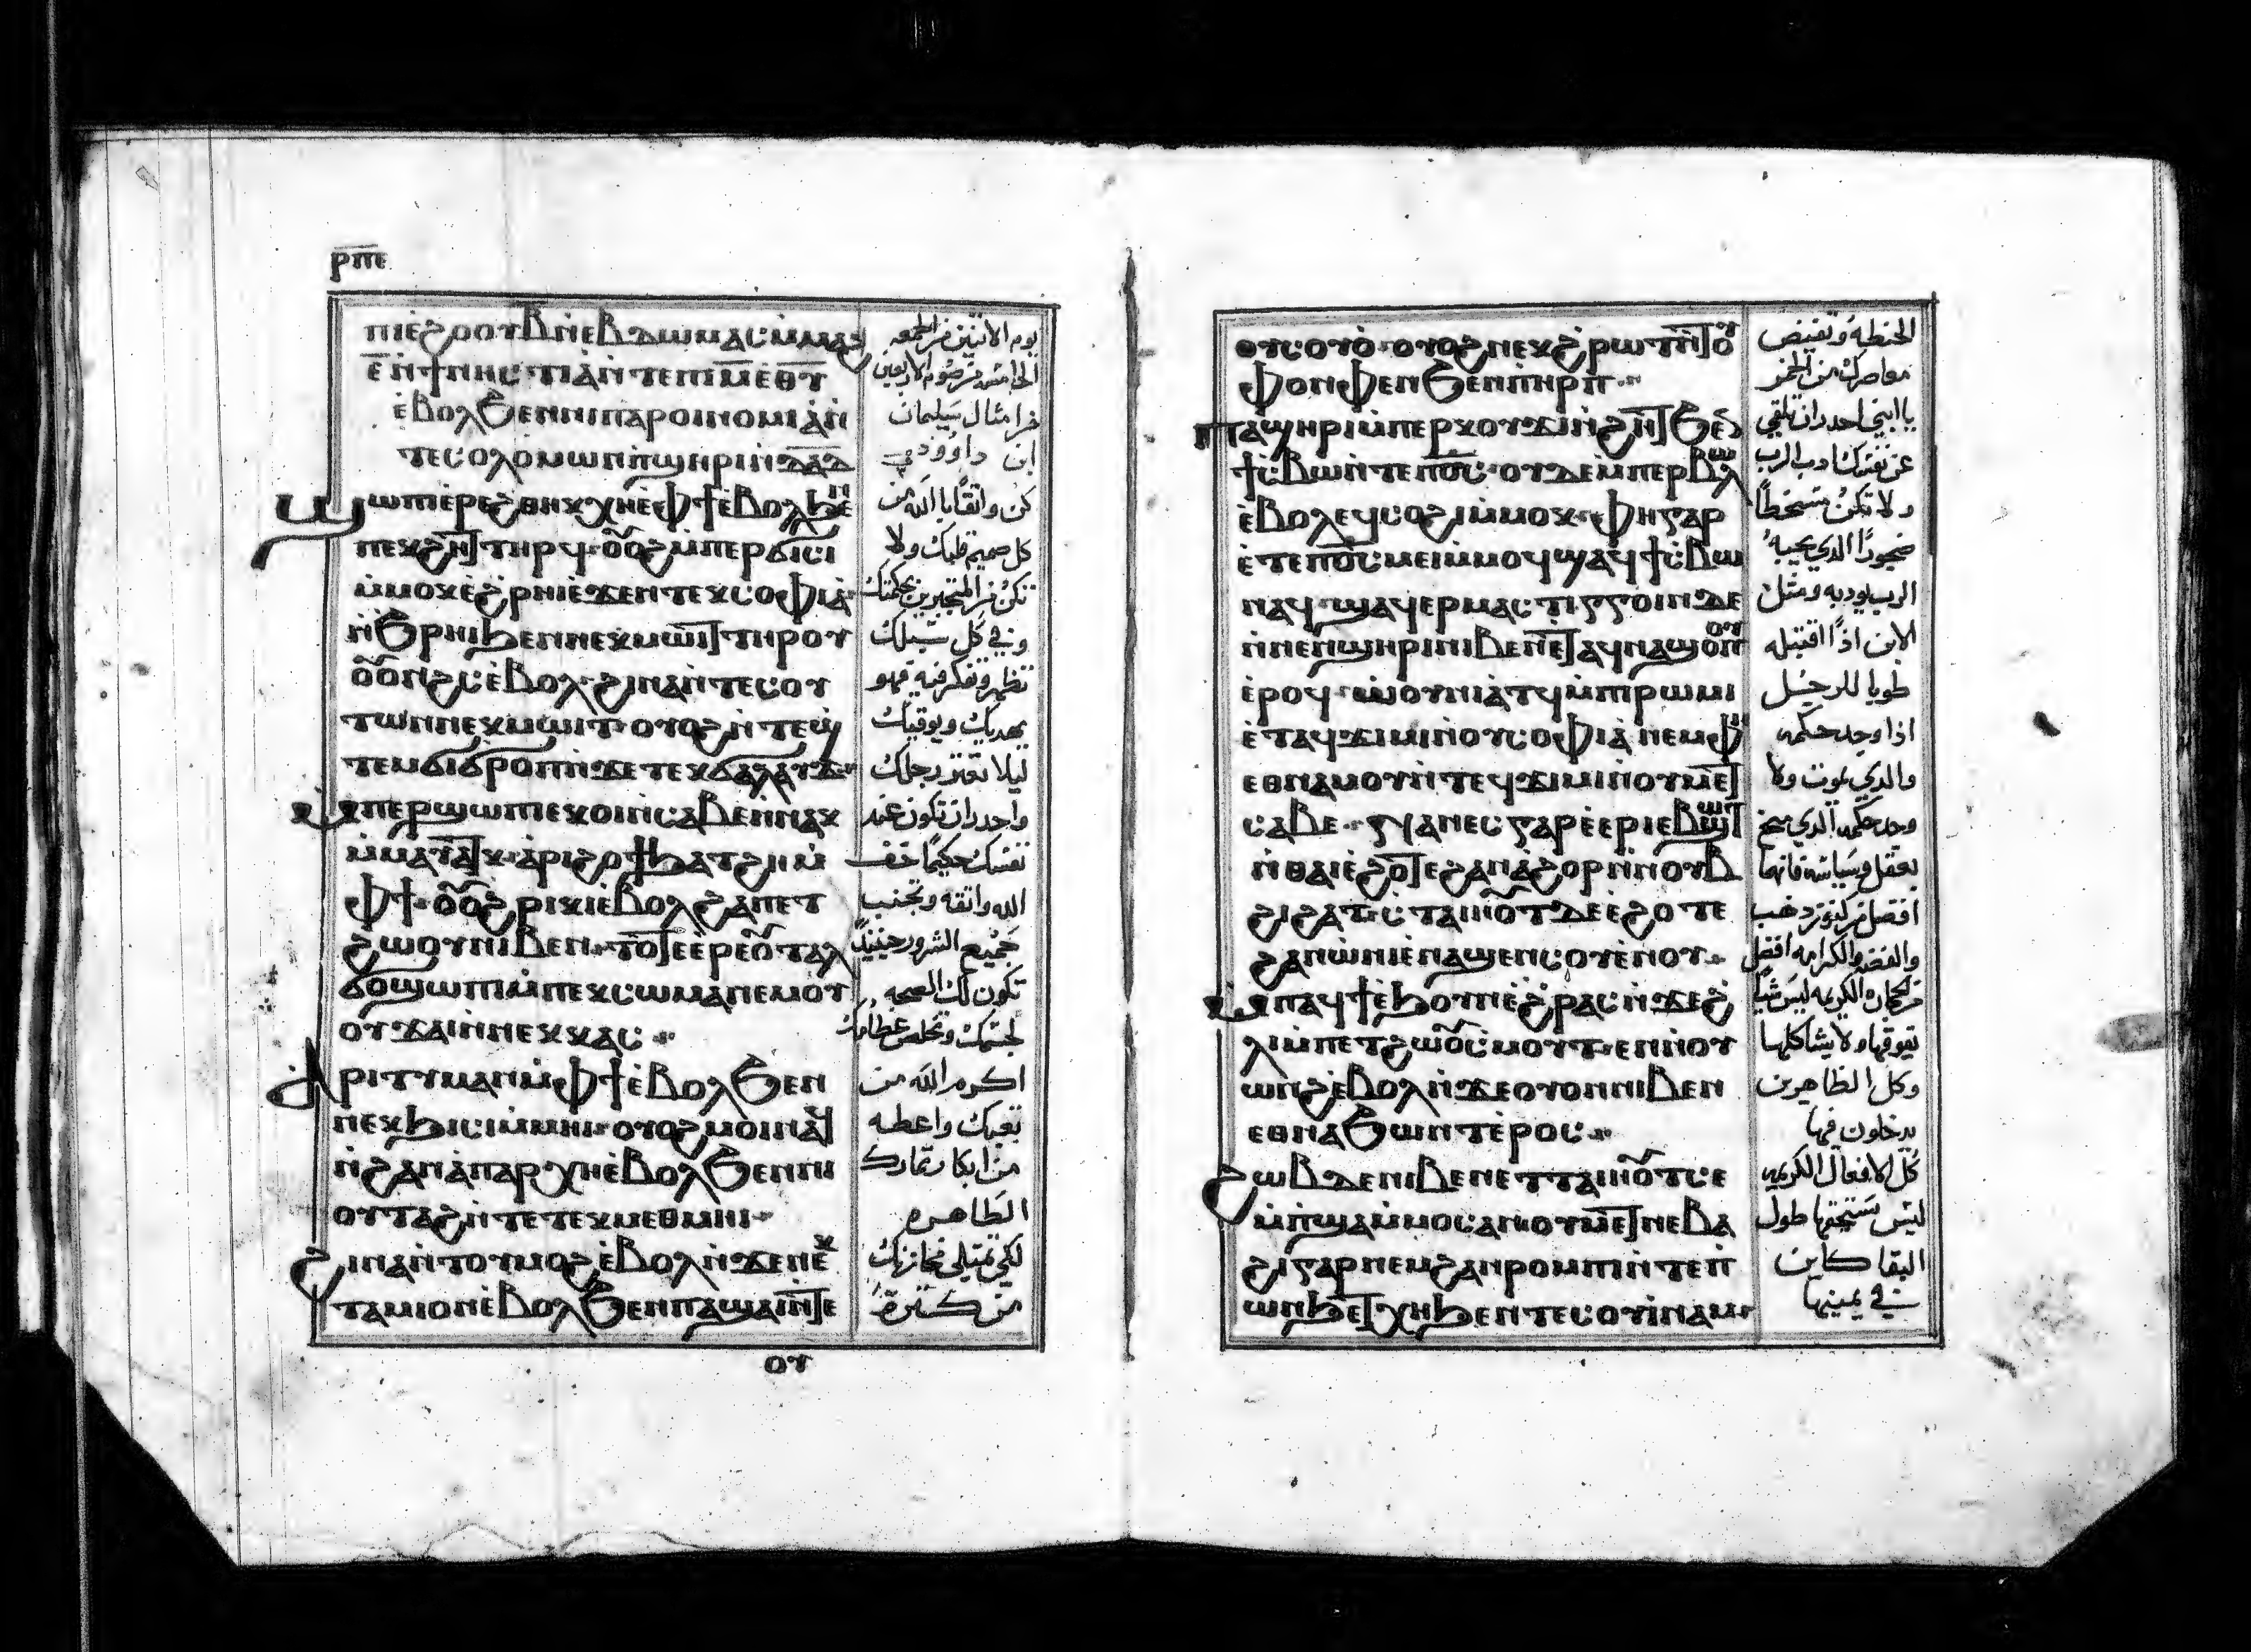 ⲣⲡⲉ
ⲡⲓⲉϩⲟⲟⲩ ⲃ ⲛ̀ⲉⲃⲇⲱⲙⲁⲥ ⲙ̀ⲙⲁϩ
ⲉ̅ ⲛ̀ϯⲛⲏⲥⲧⲓⲁ ⲛ̀ⲧⲉ ⲡⲓⲙ̅ ⲉ̅ⲑ̅ⲩ̅
ⲉ̀ⲃⲟⲗϧⲉⲛ ⲛⲓⲡⲁⲣⲟⲓⲙⲟⲙⲓⲁ ⲛ̀
ⲧⲉ ⲥⲟⲗⲟⲙⲱⲛ ⲡ̀ϣⲏⲣⲓ ⲛ̀ⲇ̅ⲁ̅ⲇ̅
ϣⲱⲡⲓ ⲉ̀ⲣⲉϩⲑⲏⲕ ⲭⲏ ⲉ̀ⲫϯ ⲉ̀ⲃⲟⲗϧⲉⲛ
ⲡⲉⲕϩⲏⲧ ⲧⲏⲣϥ ⲟⲩⲟϩ ⲙ̀ⲡⲉⲣϭⲓⲥⲓ
ⲙ̀ⲙⲟⲕ ⲉ̀ϩⲣⲏⲓ ⲉ̀ϫⲉⲛ ⲧⲉⲕⲥⲟⲫⲓⲁ
ⲛ̀ϩⲣⲏⲓ ϧⲉⲛ ⲛⲉⲕⲙⲱⲓⲧ ⲧⲏⲣⲟⲩ
ⲟⲩⲟⲛϩⲥ ⲉ̀ⲃⲟⲗ ϩⲓⲛⲁ ⲛ̀ⲧⲉⲥⲟⲩ
ⲧⲱⲛ ⲛⲉⲕⲙⲱⲓⲧ ⲟⲩⲟϩ ⲛ̀ⲧⲉϣ
ⲧⲉⲙϭⲓϭⲣⲟⲡ ⲛ̀ϫⲉ ⲧⲉⲕϭⲁⲗⲁⲩϫ
ⲙ̀ⲡⲉⲣϣⲱⲡⲓ ⲉⲕⲟⲓ ⲛ̀ⲥⲁⲃⲉ ⲛ̀ⲛⲁⲕ
ⲙ̀ⲙⲁⲩⲁⲧⲕ ⲁ̀ⲣⲓϩⲟϯ ϧⲁⲧϩⲏ ⲙ̀
ⲫϯ ⲟⲩⲟϩ ⲣⲓⲕⲓ ⲉ̀ⲃⲟⲗϩⲁ ⲡⲉⲧ
ϩⲱⲟⲩ ⲛⲓⲃⲉⲛ ⲧⲟⲧⲉ ⲉ̀ⲣⲉ ⲟⲩⲧⲁⲗ
ϭⲟ ϣⲱⲡⲓ ⲙ̀ⲡⲉⲕⲥⲱⲙⲁ ⲛⲉⲙ ⲟⲩ
ⲟⲩϫⲁⲓ ⲛ̀ⲛⲉⲕⲕⲁⲥ
ⲁⲣⲓⲧⲩⲙⲁⲛ ⲙ̀ⲫϯ ⲉ̀ⲃⲟⲗϧⲉⲛ
ⲡⲉⲕϧⲓⲥⲓ ⲙ̀ⲙⲏⲓ ⲟⲩⲟϩ ⲙⲟⲓ ⲛⲁϥ
ⲛ̀ϩⲁⲛⲁⲡⲁⲣⲭⲏ ⲉ̀ⲃⲟⲗϧⲉⲛ ⲛⲓ
ⲟⲩⲧⲁϩ ⲛ̀ⲧⲉ ⲧⲉⲕⲙⲉⲑⲙⲏⲓ
ϩⲓⲛⲁ ⲛ̀ⲧⲟⲩⲙⲟϩ ⲉ̀ⲃⲟⲗ ⲛ̀ϫⲉ ⲛⲉⲕ
ⲧⲁⲙⲓⲟⲛ ⲉ̀ⲃⲟⲗϧⲉⲛ ⲡⲁϣⲁⲓ ⲛ̀ⲧⲉ
ⲟⲩ
يوم الاثنين من الجمعه
الخامسه من صوم الاربعين
من امثال سليمان
ابن داوودي
كن واثقا بالله من
كل صميم قلبك ولا
تكن من المتجبرين بحكمتك
وفي كل سبلك
تظهر وتفكر فيه فهو
يهديك ويوقيك
ليلا تعثر رجلك
واحدر ان تكون عند
نفسك حكيما خف
الله واتقه وتجنب
جميع الشرور حينيدا
تكون لك الصحه
لجسمك وتخلص عظامك
اكرم الله من
تعبك واعطه
من ابكار تمارك
الطاهره
لكي تمتلى مخازنك
من كثرة
ⲑⲩⲥⲟⲩⲟ ⲟⲩⲟϩ ⲛⲉⲕϩⲣⲱⲧ ⲛ̀ⲧⲟⲩ
ⲫⲟⲛⲫⲉⲛ ϧⲉⲛ ⲡⲏⲣⲡ
ⲡⲁϣⲏⲣⲓ ⲙ̀ⲡⲉⲣⲭⲟⲩϫⲓⲛ̀ϩⲏⲧ ϧⲉⲛ
ϯⲥⲃⲱ ⲛ̀ⲧⲉ ⲡⲟ̅ⲥ̅ ⲟⲩⲇⲉ ⲙ̀ⲡⲉⲣⲃⲱⲗ
ⲉ̀ⲃⲟⲗ ⲉϥⲥⲟϩⲓ ⲙ̀ⲙⲟⲕ ⲫⲏ ⲅⲁⲣ
ⲉ̀ⲧⲉ ⲡⲟ̅ⲥ̅ ⲙⲉⲓ ⲙ̀ⲙⲟϥ ϣⲁϥϯⲥⲃⲱ
ⲛⲁϥ ϣⲁϥⲉⲣⲙⲁⲥⲧⲓⲅⲅⲟⲓⲛ ⲇⲉ
ⲛ̀ⲛⲉⲛϣⲏⲣⲓ ⲛⲓⲃⲉⲛ ⲉⲧⲁϥⲛⲁϣⲟⲡⲟⲩ
ⲉ̀ⲣⲟϥ ⲱ̀ⲟⲩⲛⲓⲁⲧϥ ⲙ̀ⲡⲓⲣⲱⲙⲓ
ⲉ̀ⲧⲁϥϫⲓⲙⲓ ⲛ̀ⲟⲩⲥⲟⲫⲓⲁ ⲛⲉⲙ ⲫⲏ
ⲉⲑⲛⲁⲙⲟⲩ ⲛ̀ⲧⲉϥϫⲓⲙⲓ ⲛ̀ⲟⲩⲙⲉⲧ
ⲥⲁⲃⲉ ⲅⲛⲁⲛⲉⲥ ⲅⲁⲣ ⲉ̀ⲉⲣⲓⲉⲃϣⲱⲧ
ⲛ̀ⲑⲁⲓ ⲉ̀ϩⲟⲧⲉ ϩⲁⲛⲁϩⲟⲣ ⲛ̀ⲛⲟⲩⲃ
ϩⲓ ϩⲁⲧ ⲥⲧⲁⲓⲏⲟⲩⲧ ⲇⲉ ⲉ̀ϩⲟⲧⲉ
ϩⲁⲛⲱ̀ⲛⲓ ⲉ̀ⲛⲁϣⲉⲛⲥⲟⲩⲉⲛⲟⲩ
ⲙ̀ⲡⲁϥϯ ⲉ̀ϧⲟⲩⲛ ⲉ̀ϩⲣⲁⲥ ⲛ̀ϫⲉ ϩ
ⲗⲓ ⲙ̀ⲡⲉⲧϩⲱⲟⲩ ⲥⲙⲟⲩⲧⲉⲛ ⲛ̀ⲟⲩ
ⲱⲛϩ ⲉ̀ⲃⲟⲗ ⲛ̀ϫⲉ ⲟⲩⲟⲛ ⲛⲓⲃⲉⲛ
ⲉⲑⲛⲁϧⲱⲛⲧ ⲉ̀ⲣⲟⲥ
ϩⲱⲃ ⲇⲉ ⲛⲓⲃⲉⲛ ⲉⲧⲧⲁⲓⲏⲟⲩⲧ ⲥⲉ
ⲙ̀ⲡϣⲁ ⲙ̀ⲙⲟⲥ ⲁⲛ ⲟⲩⲙⲉⲧⲛⲉⲃⲁ
ϩⲓ ⲅⲁⲣ ⲛⲉⲙ ϩⲁⲛⲣⲟⲙⲡⲓ ⲛ̀ⲧⲉ ⲡ
ⲱⲛϧ ⲉⲧⲭⲏ ϧⲉⲛ ⲧⲉⲥⲟⲩⲓⲛⲁⲙ
الحنطه وتفيض
معاصرك من الخمر
يا ابني احدر ان تلقي
عن نفسك ادب الرب
ولا تكن متسخطا
ضجورا الدي يحبه
الرب يودبه ومثل
الابن اذا اقتبله
طوبا للرجل
اذا وجد حكمه
والدي يموت ولا
وجد حكمه الدي سخ
بعقل وسياسه فانها
افضل من كنوز دهب
والفضه والكرامه افضل
من حجاره الكريمه ليس شيا
يعوقها ولا يشاكلها
وكل الظاهرين
يدخلون فيها
كل الافعال الكريمه
ليس يستحقها طول
البقا كاين
في يمينها